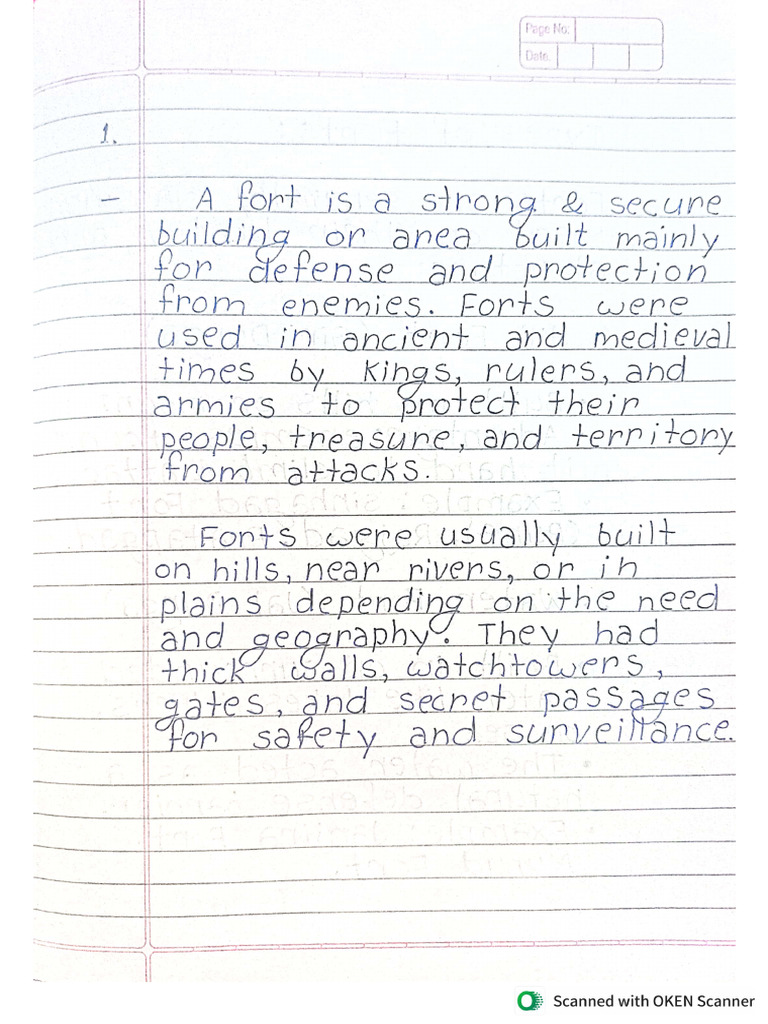 Page No:
Date:
1.
- A fort is a strong & secure
building or area built mainly
for defense and protection
from enemies. Forts were
used in ancient and medieval
times by kings, rulers, and
armies to protect their
people, treasure, and territory
from attacks.
Forts were usually built
on hills, near rivers, or in
plains depending on the need
and geography. They had
thick walls, watchtowers,
gates, and secret passages
for safety and surveillance.
Scanned with OKEN Scanner